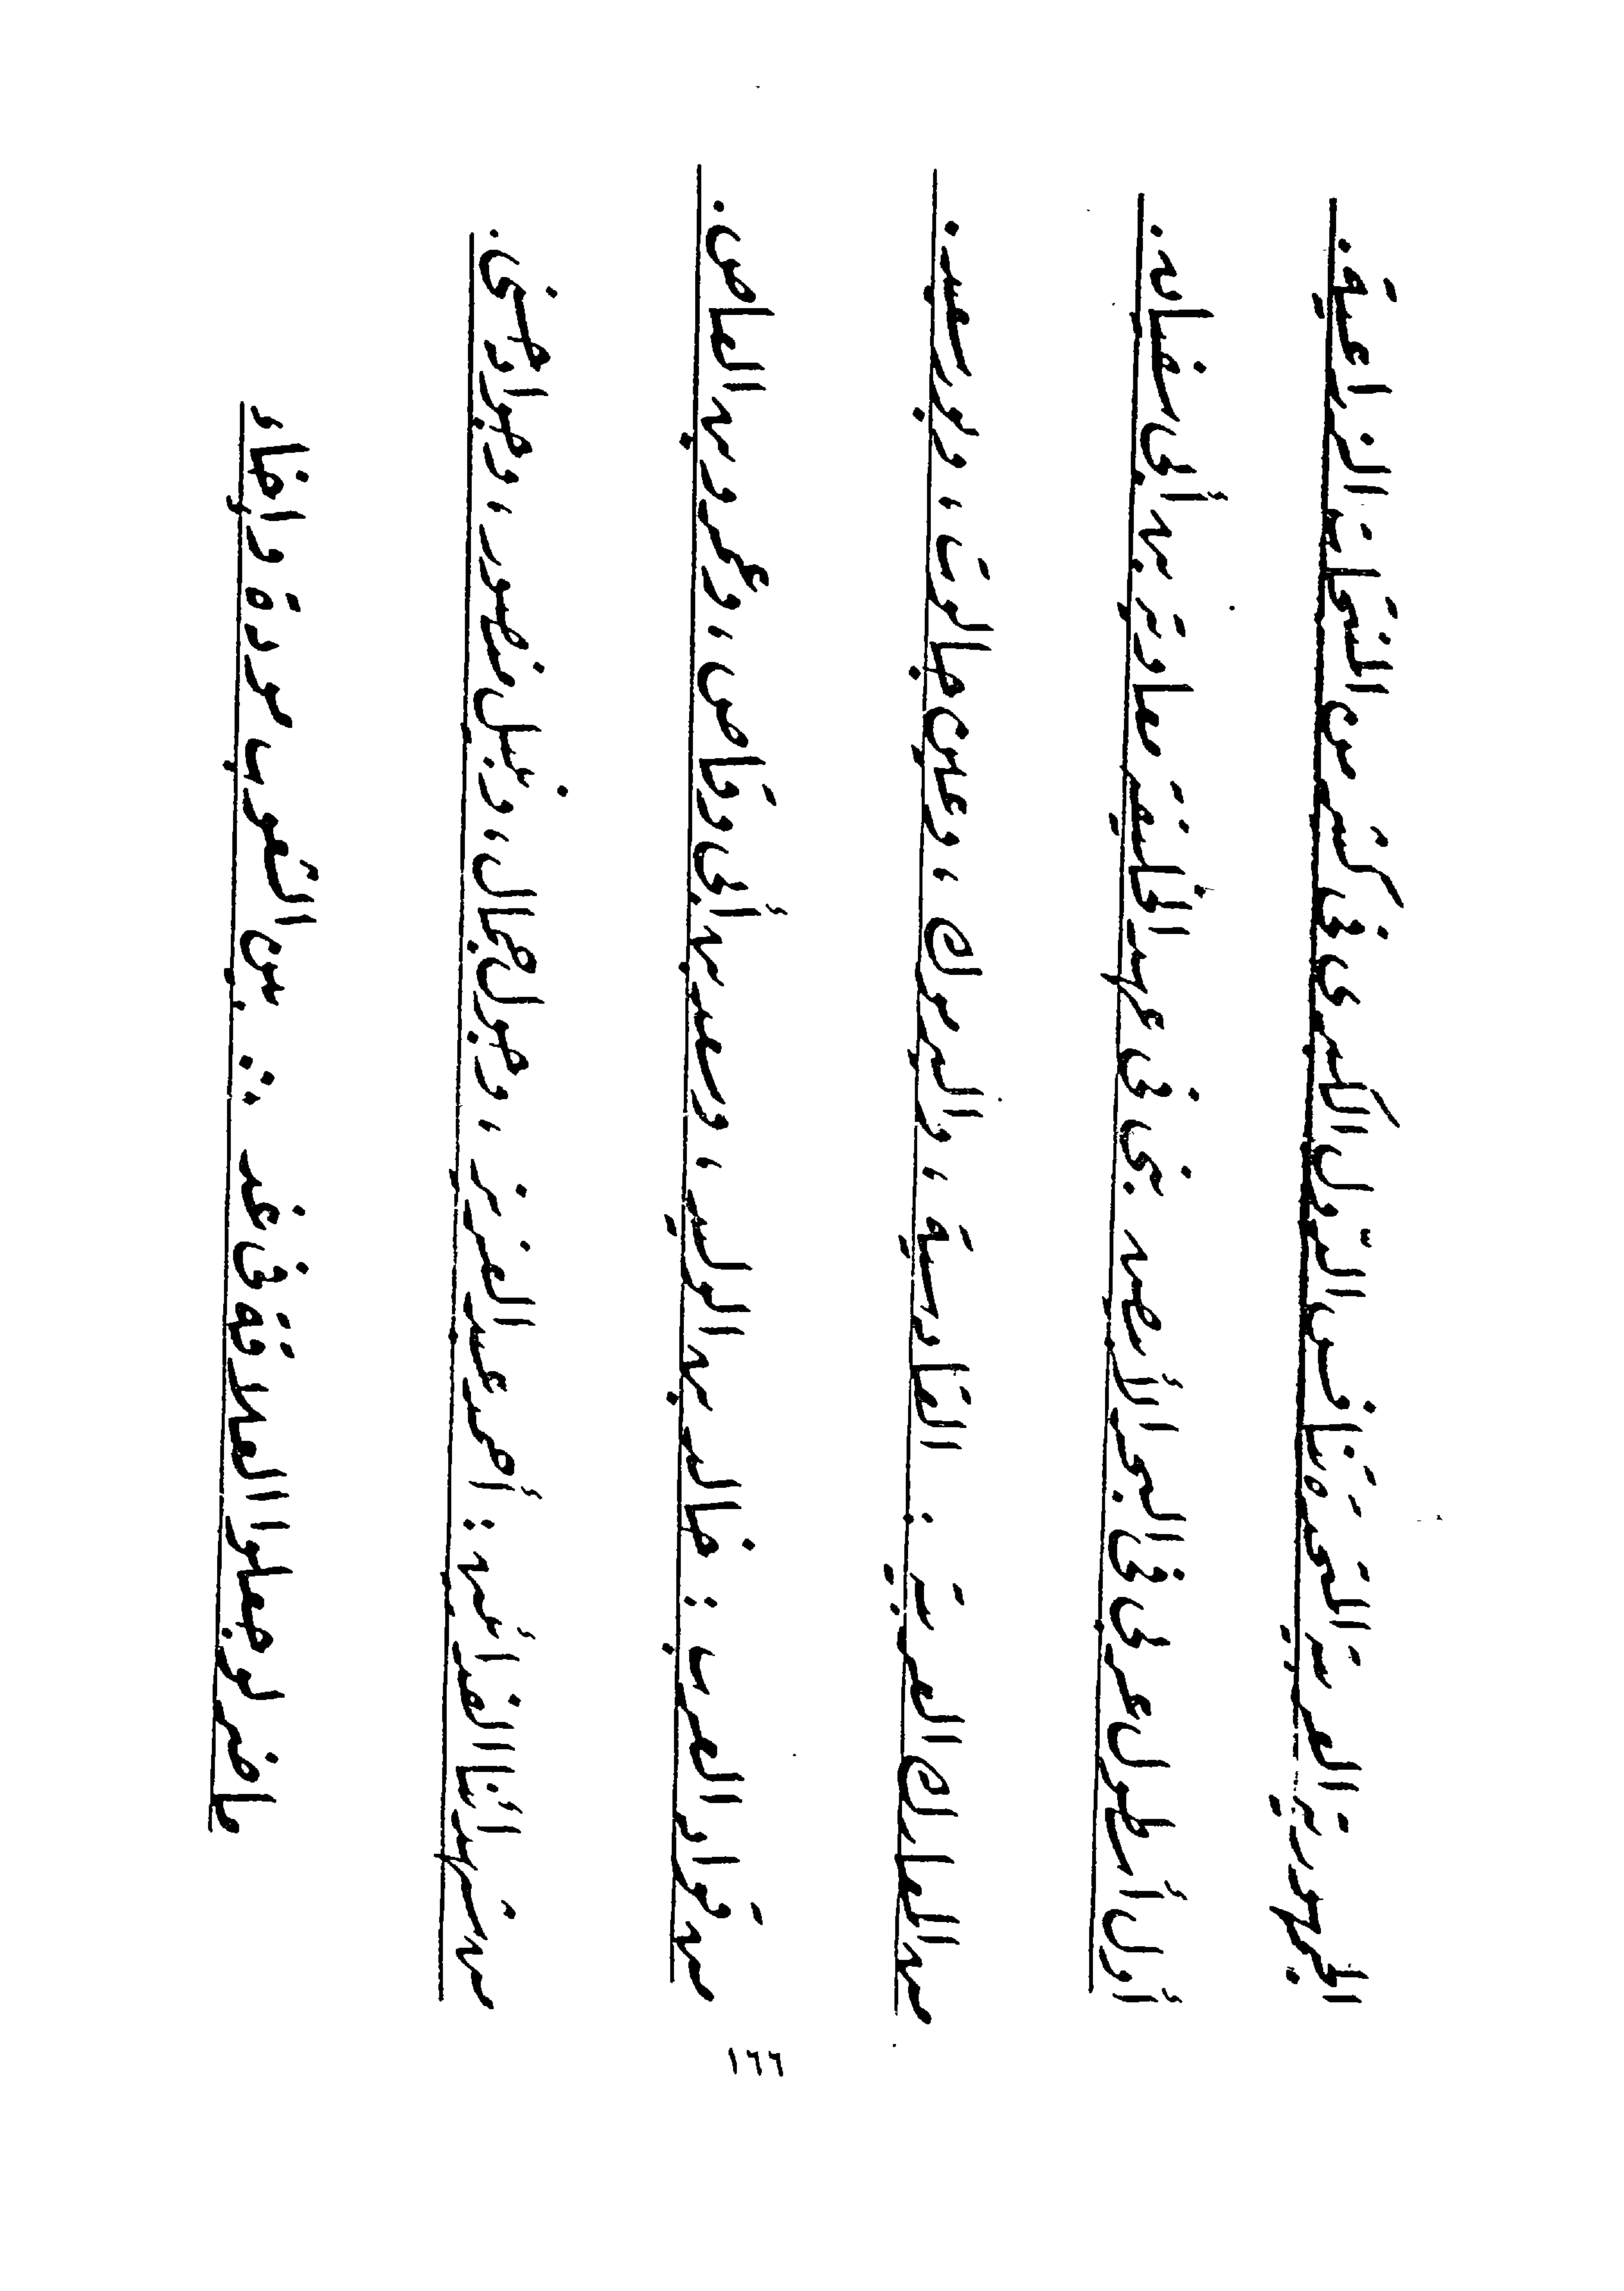 الجمهورية العربية المتحدة تنافس الدّول الكبرى فى كثير من المنتجات الزراعية.
أول أسطول عربى فى البحر الأبيض بنى فى عهد الخليفة معاوية بن أبى سفيان.
من المعارك العربية : القادسية ، واليرموك ، وعين جالوت ، وبورسعيد.
من قواد العرب : خالد بن الوليد ، وسعد بن أبى وقاص ، وعمرو بن العاص.
من شهدائنا الفدائيين : أحمد عبد العزيز ، وجول جمال ، ونبيل منصور ، وجواد حسنى.
ما ضر لو جعلوا العلاقة فى غد ∴ بين الشعوب مودة وإخاء
١٦٦